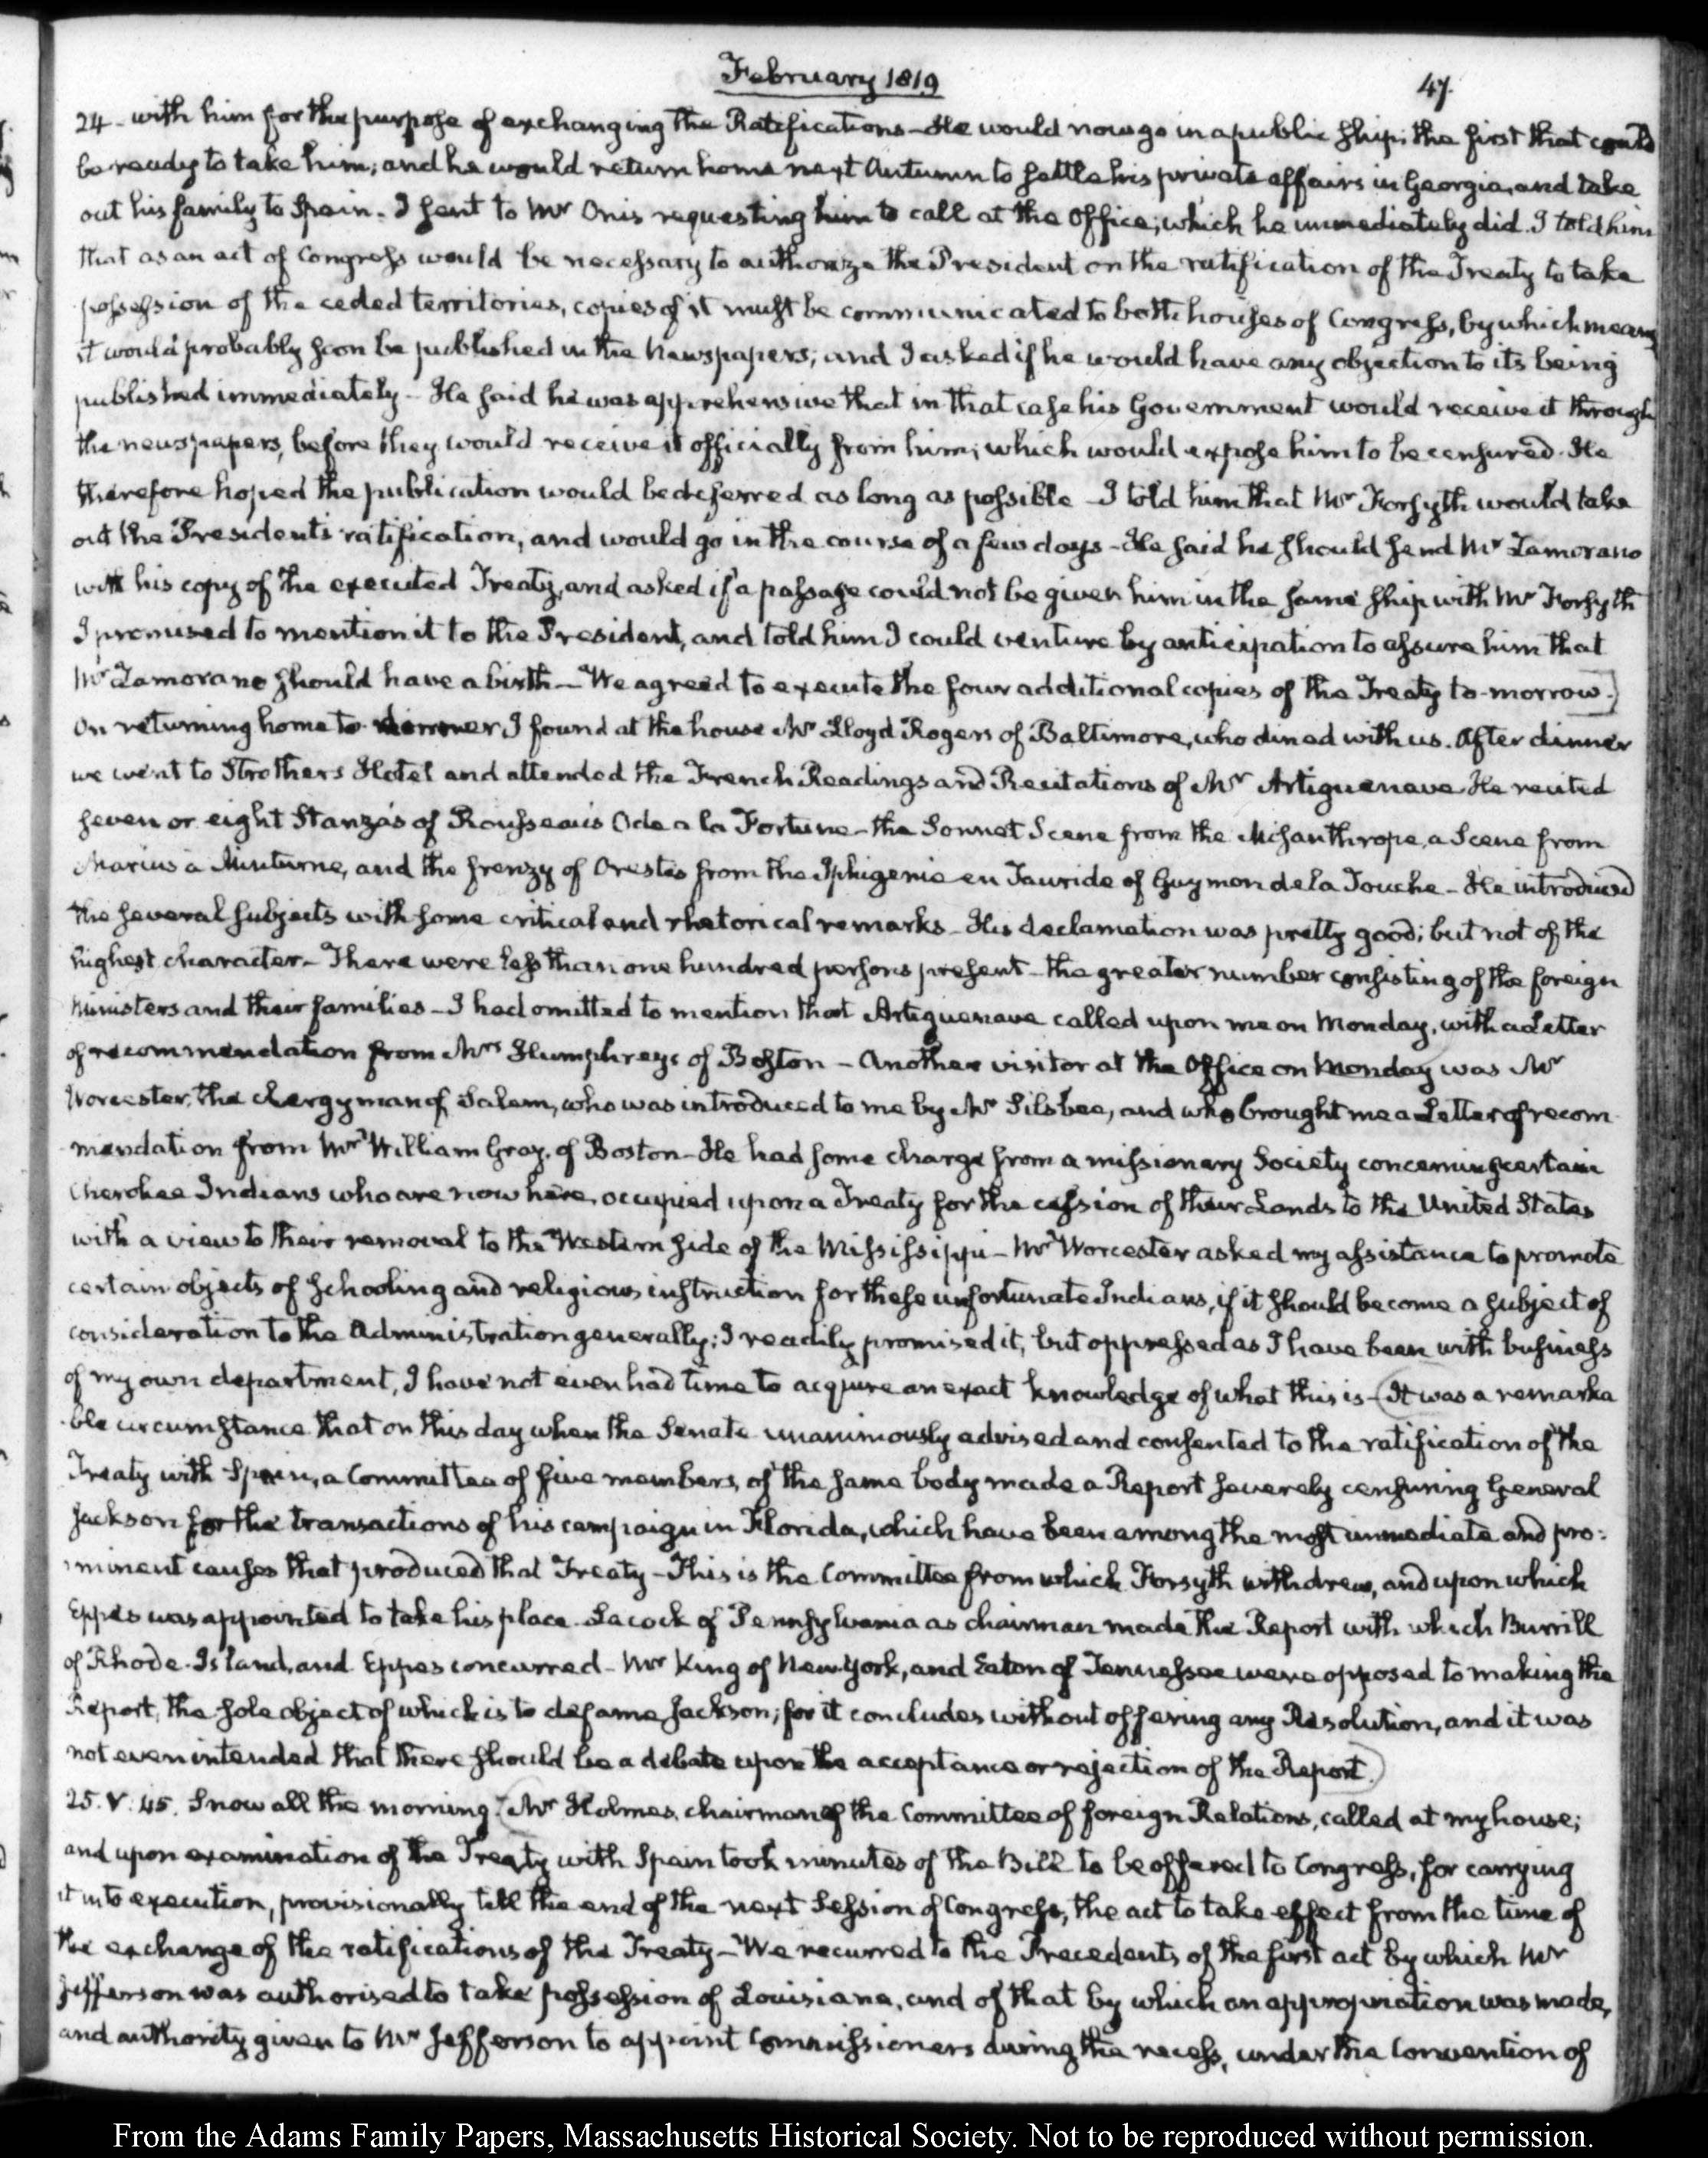 February 1819
47.
24 - with him for the purpose of exchanging the Ratifications - He would now go in a public ship; the first that could
be ready to take him; and he would return home next Autumn to settle his private affairs in Georgia, and take
out his family to Spain. I sent to Mr Onis requesting him to call at the Office; which he immediately did. I told him
that as an act of Congress would be necessary to authorize the President on the ratification of the Treaty to take
possession of the ceded territories, copies of it must be communicated to both houses of Congress, by which means
it would probably soon be published in the Newspapers; and I asked if he would have any objection to its being
published immediately - He said he was apprehensive that in that case his Government would receive it through
the newspapers, before they would receive it officially from him; which would expose him to be censured. He
therefore hoped the publication would be deferred as long as possible - I told him that Mr Forsyth would take
out the President's ratification, and would go in the course of a few days - He said he should send Mr Zamorano
with his copy of the executed Treaty, and asked if a passage could not be given him in the same ship with Mr Forsyth
I promised to mention it to the President, and told him I could venture by anticipation to assure him that
Mr Zamorano should have a birth - We agreed to execute the four additional copies of the Treaty to-morrow.]
On returning home to dinner, I found at the house Mr Lloyd Rogers of Baltimore, who dined with us. After dinner
we went to Strothers Hotel and attended the French Readings and Recitations of Mr Artiguenave. He recited
seven or eight Stanzas of Rousseau's Ode a la Fortune - the Sonnet Scene from the Misanthrope, a Scene from
Marius à Minturne, and the frenzy of Orestes from the Iphigenie en Tauride of Guymon de la Touche - He introduced
the several subjects with some critical and rhetorical remarks - His declamation was pretty good; but not of the
highest character - There were less than one hundred persons present - the greater number consisting of the foreign
Ministers and their families - I had omitted to mention that Artiguenave called upon me on Monday, with a Letter
of recommendation from Mrs Humphreys of Boston - Another visitor at the Office on Monday was Mr
Worcester, the Clergyman of Salem, who was introduced to me by Mr Silsbee, and who brought me a Letter of recom
mendation from Mr William Gray, of Boston - He had some charge from a missionary Society concerning certain
Cherokee Indians who are now here, occupied upon a Treaty for the cession of their Lands to the United States
with a view to their removal to the Western side of the Mississippi - Mr Worcester asked my assistance to promote
certain objects of schooling and religious instruction for these unfortunate Indians, if it should become a subject of
consideration to the Administration generally; I readily promised it, but oppressed as I have been with business
of my own department, I have not even had time to acquire an exact knowledge of what this is - (It was a remarka
ble circumstance that on this day when the Senate unanimously advised and consented to the ratification of the
Treaty with Spain, a Committee of five members, of the same body made a Report severely censuring General
Jackson for the transactions of his campaign in Florida, which have been among the most immediate and pro:
minent causes that produced that Treaty - This is the Committee from which Forsyth withdrew, and upon which
Eppes was appointed to take his place. Lacock of Pennsylvania as chairman made the Report with which Burrill
of Rhode-Island, and Eppes concurred - Mr King of New York, and Eaton of Tennessee were opposed to making the
Report, the sole object of which is to defame Jackson; for it concludes without offering any Resolution, and it was
not even intended that there should be a debate upon the acceptance or rejection of the Report.)
25. V: 45. Snow all the morning. (Mr Holmes, chairman of the Committee of foreign Relations, called at my house;
and upon examination of the Treaty with Spain took minutes of the Bill to be offered to Congress, for carrying
it into execution, provisionally till the end of the next Session of Congress, the act to take effect from the time of
the exchange of the ratifications of the Treaty - We recurred to the Precedents of the first act by which Mr
Jefferson was authorised to take possession of Louisiana, and of that by which an appropriation was made,
and authority given to Mr Jefferson to appoint Commissioners during the recess, under the Convention of
From the Adams Family Papers, Massachusetts Historical Society. Not to be reproduced without permission.